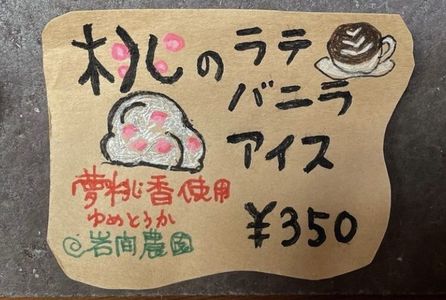 桃のラテ
バニラ
アイス
¥350
夢桃香使用
ゆめとうか
@岩間農園